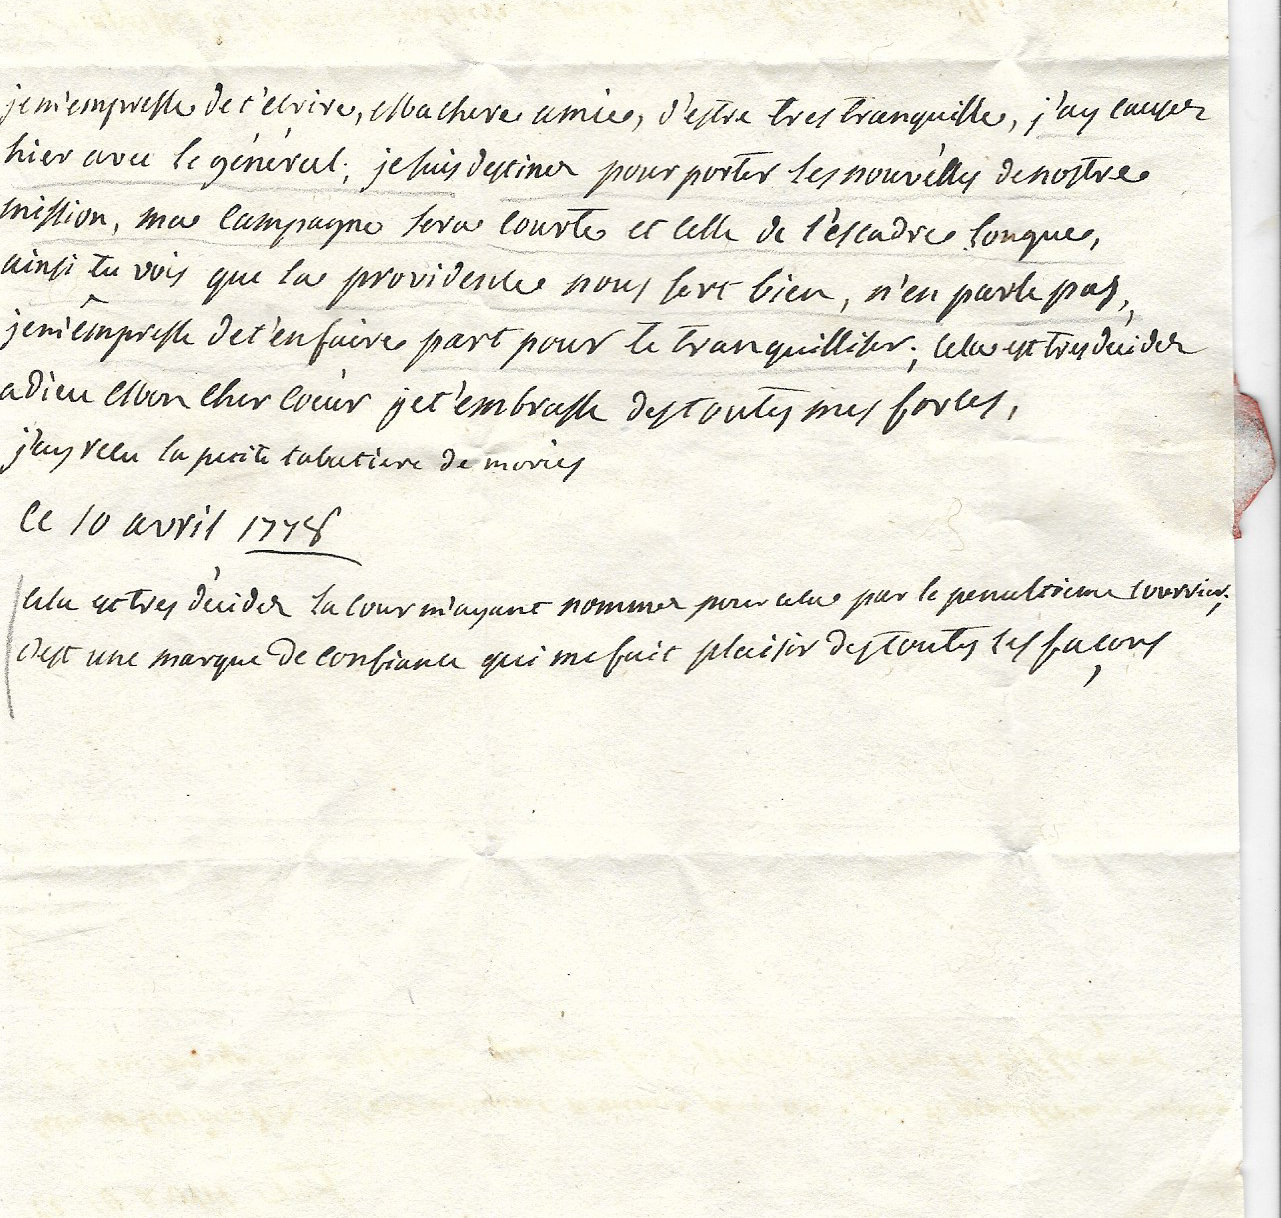 je m'empresse de t'écrire, Ma chere amie, d'estre tres tranquille, j'ay causer
hier avec le général; je suis destiner pour porter les nouvélles de nostre
mission, ma campagne sera courte et celle de l'éscadre longue,
ainsi tu vois que la providence nous sert bien, n'en parle pas,
je m'empresse de t'en faire part pour te tranquilliser; cela est tres décider
adieu Mon cher coeur je t'embrasse des toutes mes forces,
j'ay recu la petite tabatiere de mories
ce 10 avril 1778
cela est tres décider la cour m'ayant nommer pour cela par le penultieme courrier,
c'est une marque de confiance qui me fait plaisir des toutes les façons